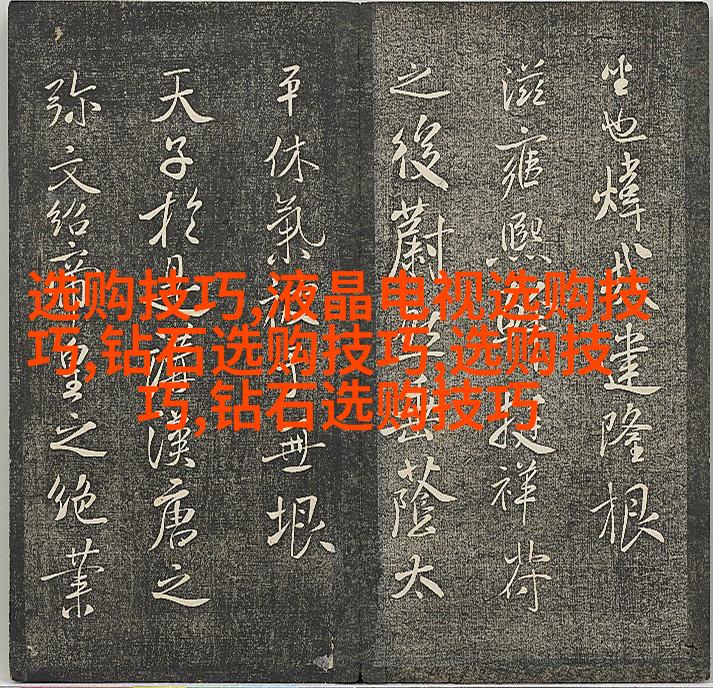 选购技巧,液晶电视选购技
巧,钻石选购技巧,选购技
巧,钻石选购技巧
坐也煒哉建隆根
滋雍熙 祥符
之後蔚 蔭太
平休氣 無垠
天子於是 漢唐之
弥文紹帝皇之絶業